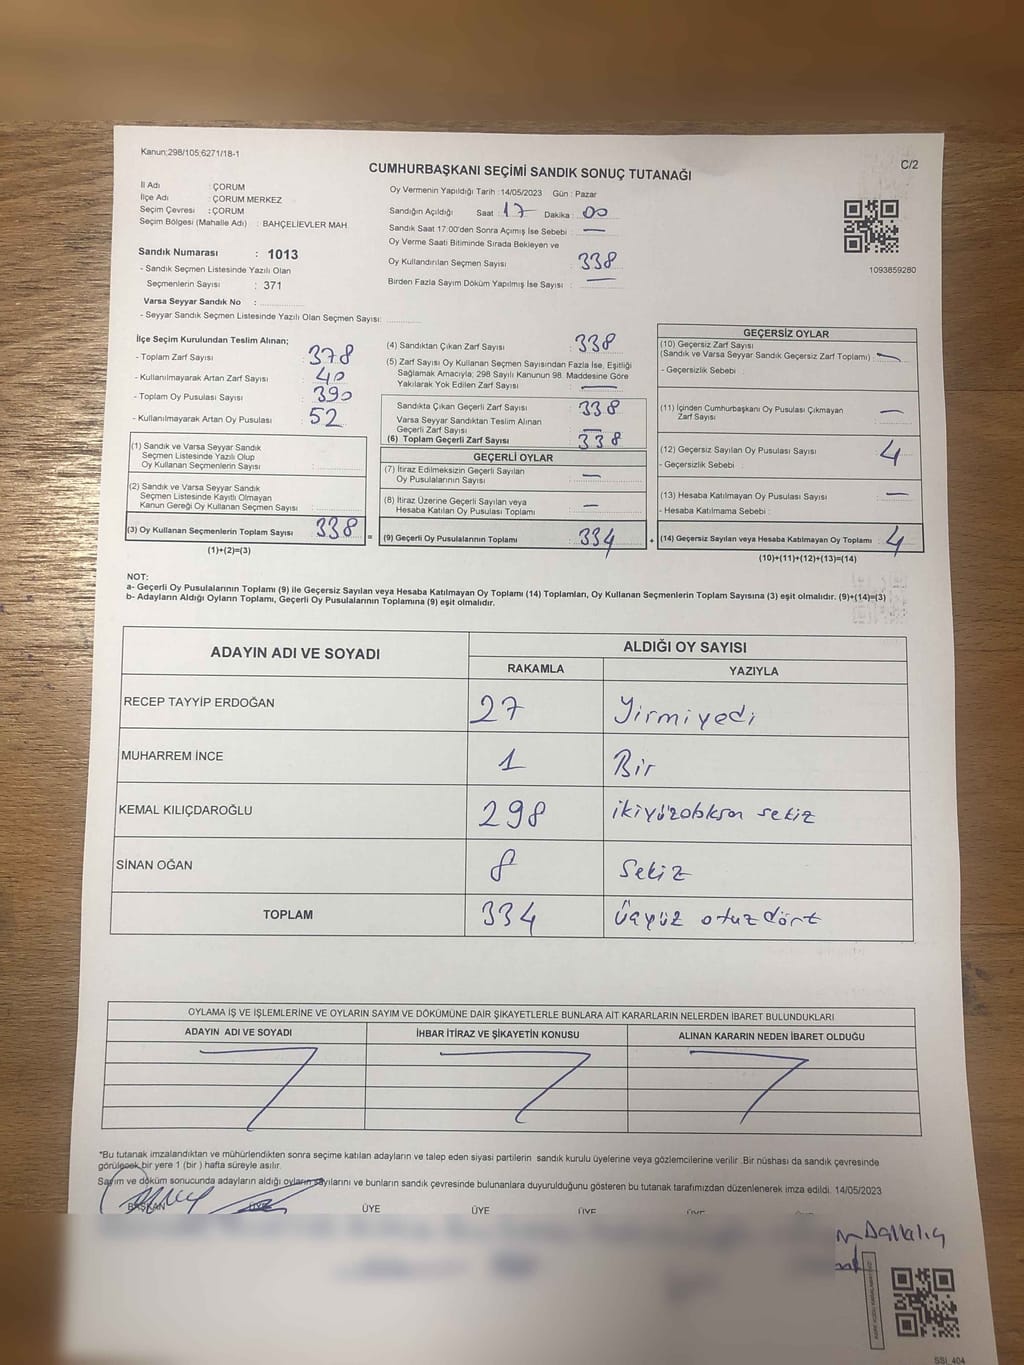 Kanun;298/105;6271/18-1
C/2
CUMHURBAŞKANI SEÇİMİ SANDIK SONUÇ TUTANAĞI
İl Adı : ÇORUM
İlçe Adı : ÇORUM MERKEZ
Seçim Çevresi : ÇORUM
Seçim Bölgesi (Mahalle Adı) : BAHÇELİEVLER MAH
Sandık Numarası : 1013
- Sandık Seçmen Listesinde Yazılı Olan
Seçmenlerin Sayısı : 371
Varsa Seyyar Sandık No :
- Seyyar Sandık Seçmen Listesinde Yazılı Olan Seçmen Sayısı:
Oy Vermenin Yapıldığı Tarih : 14/05/2023 Gün : Pazar
Sandığın Açıldığı Saat : 17 Dakika : 00
Sandık Saat 17:00'den Sonra Açımış İse Sebebi : —
Oy Verme Saati Bitiminde Sırada Bekleyen ve
Oy Kullandırılan Seçmen Sayısı : 338
Birden Fazla Sayım Döküm Yapılmış İse Sayısı : —
1093859280
İlçe Seçim Kurulundan Teslim Alınan;
- Toplam Zarf Sayısı : 378
- Kullanılmayarak Artan Zarf Sayısı : 40
- Toplam Oy Pusulası Sayısı : 390
- Kullanılmayarak Artan Oy Pusulası : 52
(1) Sandık ve Varsa Seyyar Sandık
Seçmen Listesinde Yazılı Olup
Oy Kullanan Seçmenlerin Sayısı :
(2) Sandık ve Varsa Seyyar Sandık
Seçmen Listesinde Kayıtlı Olmayan
Kanun Gereği Oy Kullanan Seçmen Sayısı :
(3) Oy Kullanan Seçmenlerin Toplam Sayısı : 338
(1)+(2)=(3)
(4) Sandıktan Çıkan Zarf Sayısı : 338
(5) Zarf Sayısı Oy Kullanan Seçmen Sayısından Fazla İse, Eşitliği
Sağlamak Amacıyla; 298 Sayılı Kanunun 98. Maddesine Göre
Yakılarak Yok Edilen Zarf Sayısı : —
Sandıkta Çıkan Geçerli Zarf Sayısı : 338
Varsa Seyyar Sandıktan Teslim Alınan
Geçerli Zarf Sayısı : —
(6) Toplam Geçerli Zarf Sayısı : 338
GEÇERLİ OYLAR
(7) İtiraz Edilmeksizin Geçerli Sayılan
Oy Pusulalarının Sayısı : —
(8) İtiraz Üzerine Geçerli Sayılan veya
Hesaba Katılan Oy Pusulası Toplamı : —
= (9) Geçerli Oy Pusulalarının Toplamı : 334
GEÇERSİZ OYLAR
(10) Geçersiz Zarf Sayısı
(Sandık ve Varsa Seyyar Sandık Geçersiz Zarf Toplamı) : —
- Geçersizlik Sebebi :
(11) İçinden Cumhurbaşkanı Oy Pusulası Çıkmayan
Zarf Sayısı : —
(12) Geçersiz Sayılan Oy Pusulası Sayısı : 4
- Geçersizlik Sebebi :
(13) Hesaba Katılmayan Oy Pusulası Sayısı : —
- Hesaba Katılmama Sebebi :
+ (14) Geçersiz Sayılan veya Hesaba Katılmayan Oy Toplamı : 4
(10)+(11)+(12)+(13)=(14)
NOT:
a- Geçerli Oy Pusulalarının Toplamı (9) ile Geçersiz Sayılan veya Hesaba Katılmayan Oy Toplamı (14) Toplamları, Oy Kullanan Seçmenlerin Toplam Sayısına (3) eşit olmalıdır. (9)+(14)=(3)
b- Adayların Aldığı Oyların Toplamı, Geçerli Oy Pusulalarının Toplamına (9) eşit olmalıdır.
ADAYIN ADI VE SOYADI
ALDIĞI OY SAYISI
RAKAMLA YAZIYLA
RECEP TAYYİP ERDOĞAN 27 Yirmiyedi
MUHARREM İNCE 1 Bir
KEMAL KILIÇDAROĞLU 298 sekiz
SİNAN OĞAN 8 Sekiz
TOPLAM 334 Üçyüz otuzdört
OYLAMA İŞ VE İŞLEMLERİNE VE OYLARIN SAYIM VE DÖKÜMÜNE DAİR ŞİKAYETLERLE BUNLARA AİT KARARLARIN NELERDEN İBARET BULUNDUKLARI
ADAYIN ADI VE SOYADI İHBAR İTİRAZ VE ŞİKAYETİN KONUSU ALINAN KARARIN NEDEN İBARET OLDUĞU
*Bu tutanak imzalandıktan ve mühürlendikten sonra seçime katılan adayların ve talep eden siyasi partilerin sandık kurulu üyelerine veya gözlemcilerine verilir .Bir nüshası da sandık çevresinde
görülecek bir yere 1 (bir ) hafta süreyle asılır.
Sayım ve döküm sonucunda adayların aldığı oyların sayılarını ve bunların sandık çevresinde bulunanlara duyurulduğunu gösteren bu tutanak tarafımızdan düzenlenerek imza edildi. 14/05/2023
BAŞKAN ÜYE ÜYE ÜYE ÜYE ÜYE
SSI. 404